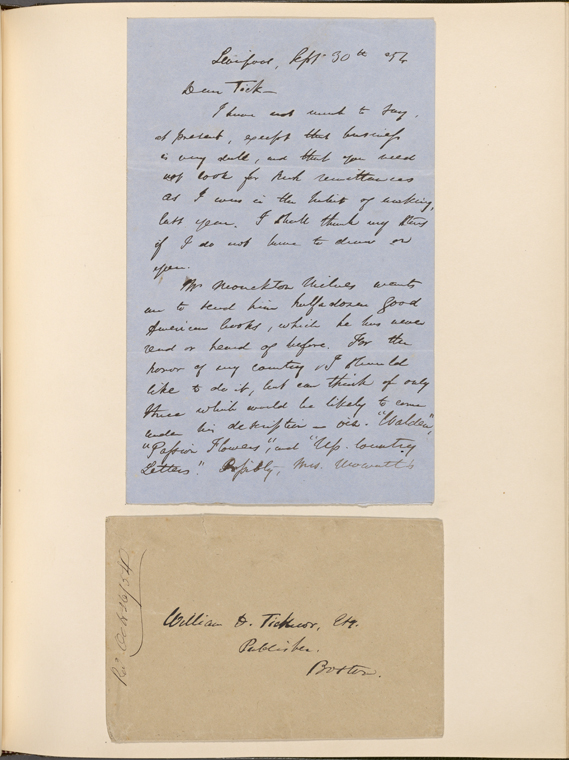 Liverpool, Sept 30th '54
Dear Tick—
I have not much to say,
at present, except that business
is very dull, and that you need
not look for such remittances
as I was in the habit of making,
last year. I shall thank my stars
if I do not have to draw on
you.
Mr Monckton Milnes wants
me to send him half a dozen good
American books, which he has never
read or heard of before. For the
honor of my country I should
like to do it, but can think of only
three which would be likely to come
under his description — viz. "Walden",
"Passion Flowers", and "Up-Country
Letters". Possibly, Mrs. Mowatt's
William D. Ticknor, Esq.
Publisher.
Boston.
Oct 16/54